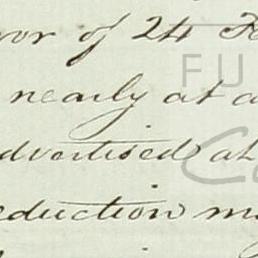 vor of 24 Fe
nearly at a
dvertised at
eduction m